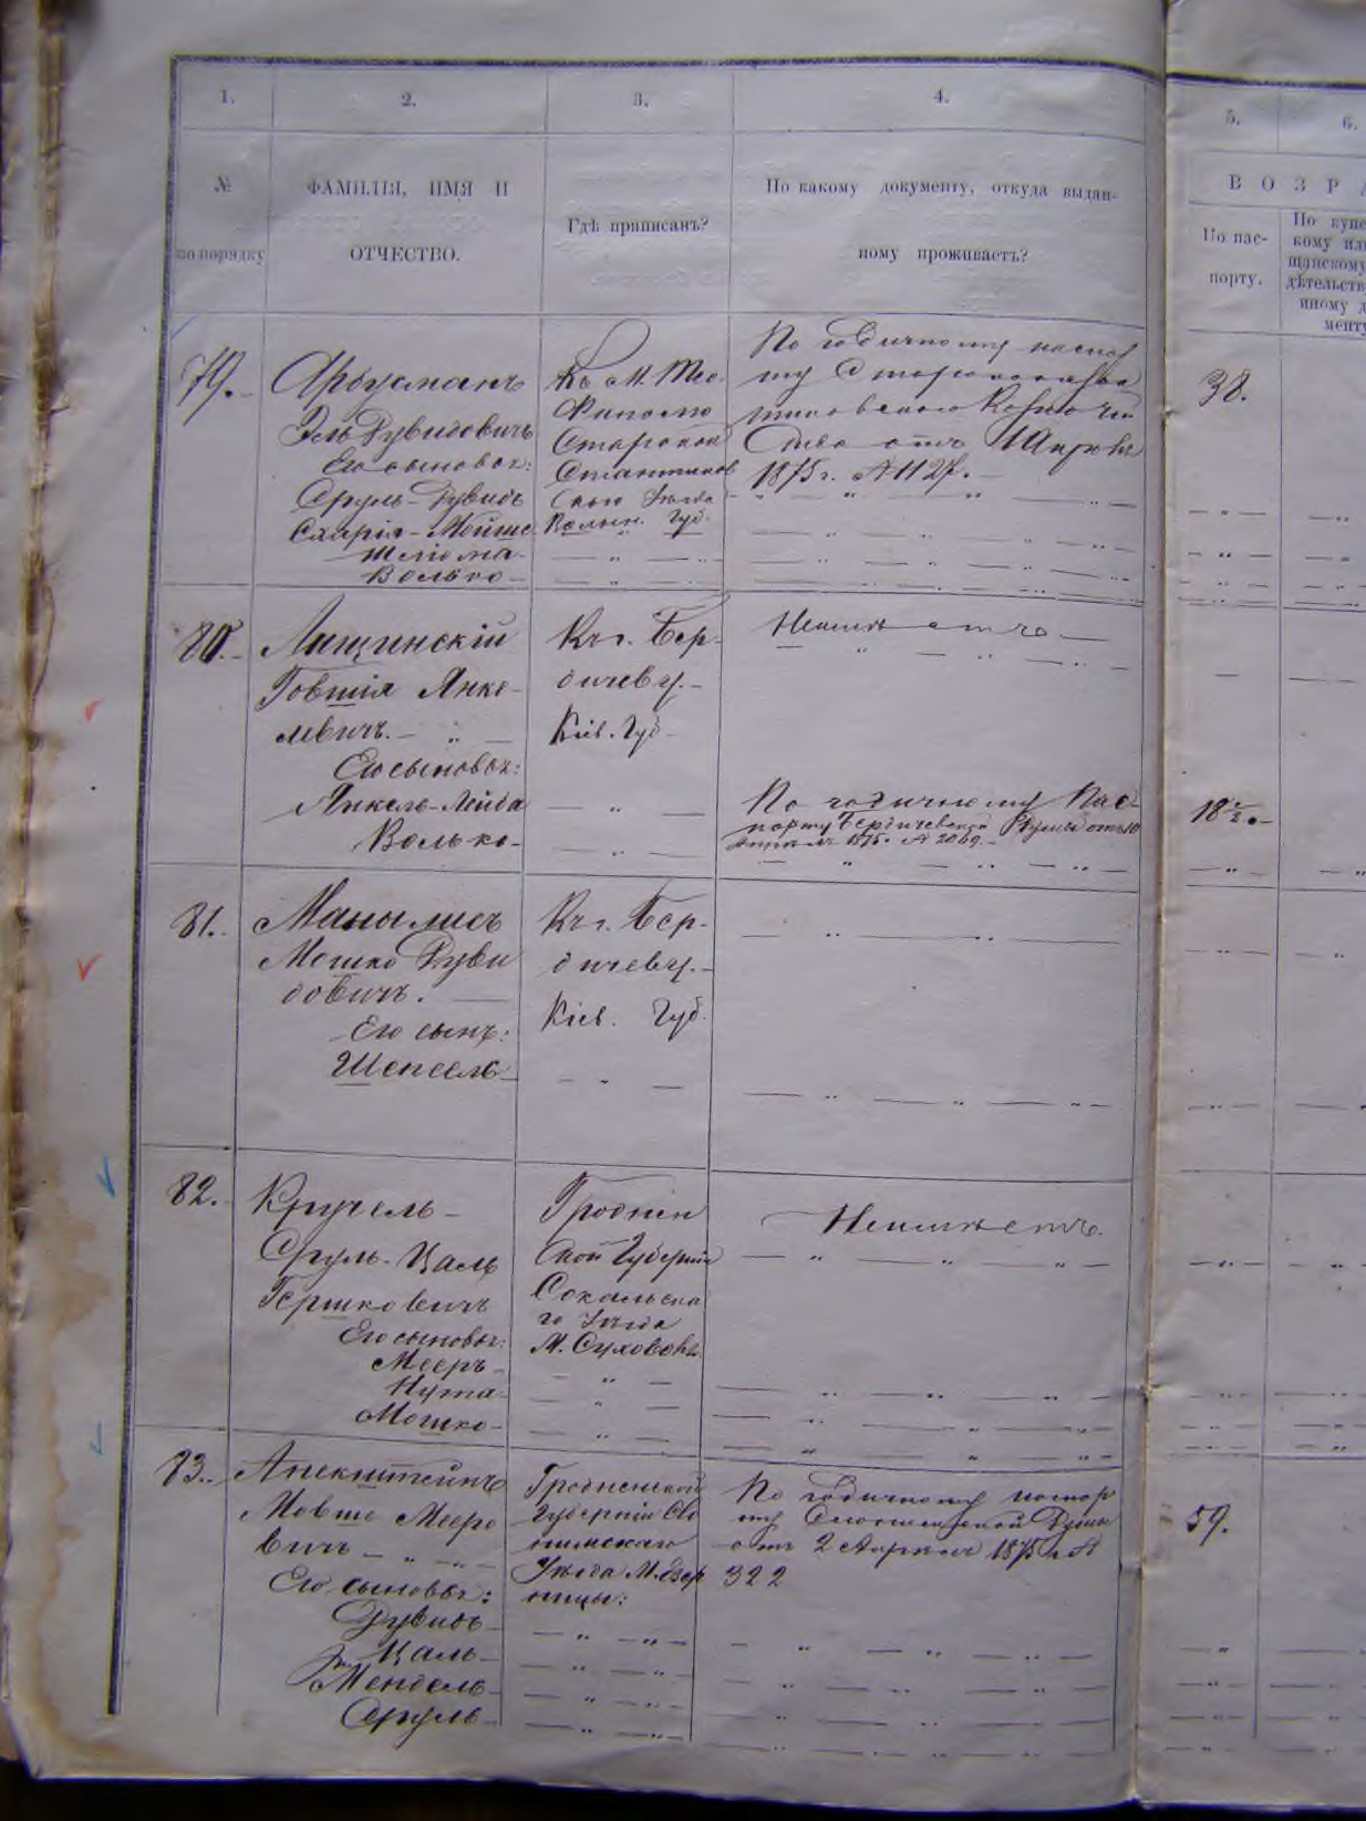 1.
2.
3.
4.
5.
6.
№
по порядку
ФАМИЛІЯ, ИМЯ И
ОТЧЕСТВО.
Гдѣ приписанъ?
По какому документу, откуда выдан-
ному проживаетъ?
ВОЗРА
По пас-
порту.
По купе
кому или
щанскому
дѣтельств
иному д
менту
79.
Эль Рувидовичъ
Его сыновья:
Сруль-Рувидъ
Схарія-Мойше
Шлiома
Волько
Къ М. Тео-
Старокон
стантинов
Волын. Губ.
По годичному паспор
ту
1875 г. № 1127.
38.
80.
Лищинскій
Іовшія Янке-
левичъ.
Его сыновья:
Янкель-Лейба
Волько
Къ г. Бер-
дичеву.
Кіев. Губ.
Неимѣетъ
По годичному Пас-
порту Бердичевской Думы отъ 10
1875. № 2069.
18 1/2
81.
Мошко Руви
довичъ.
Его сынъ:
Шепсель
Къ г. Бер-
дичеву.
Кіев. Губ.
82.
Сруль-Цаль
Гершковичъ
Его сыновья:
Мееръ
Нута
Мошко
Гроднен
ской Губерніи
Сокольска
го Уѣзда
М. Суховоля
Неимѣетъ.
83.
Мовше Мееро
вичъ
Его сыновья:
Рувидъ
Цаль
Мендель
Сруль
Гродненской
Губерніи Сло
нимскаго
Уѣзда М. Дзер
По годичному паспор
ту Слонимской Думы
отъ 2 Апрѣля 1875 г. №
322
59.